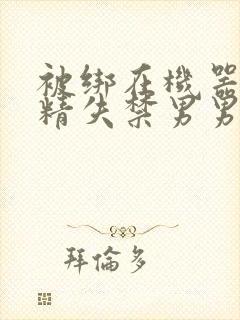 被绑在機器
精失禁男男
拜倫多